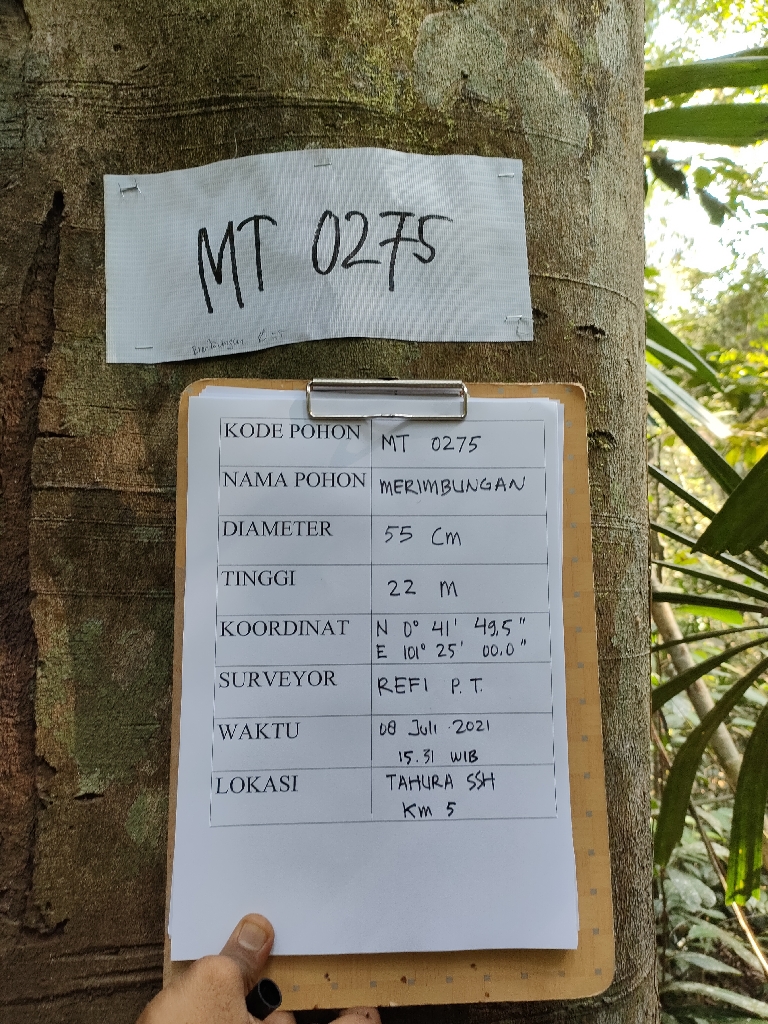 MT 0275
KODE POHON MT 0275
NAMA POHON MERIMBUNGAN
DIAMETER 55 Cm
TINGGI 22 m
KOORDINAT N 0° 41' 49,5"
E 101° 25' 00.0"
SURVEYOR REFI P.T.
WAKTU 08 Juli 2021
15.31 WIB
LOKASI TAHURA SSH
Km 5